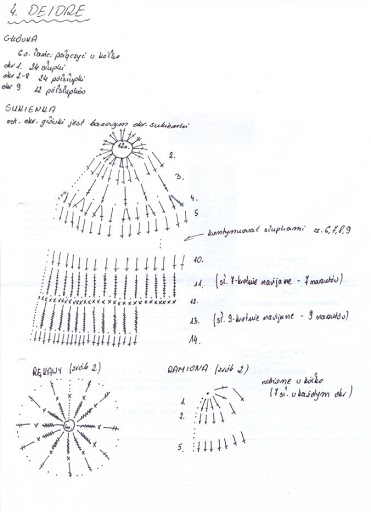 4. DEIDRE
GŁÓWKA
6 o. łańc. połączyć w kółko
okr 1. 24 słupki
okr 2-8 24 półsłupki
okr 9 12 półsłupków
SUKIENKA
ost. okr. główki jest bazowym okr. sukienki
12o.
2.
3.
4.
5
kontynuować słupkami rz. 6,7,8,9
10.
11. (sł. 7-krotnie nawijane - 7 narzutów)
12.
13. (sł. 9-krotnie nawijane - 9 narzutów)
14.
RĘKAWY (zrób 2)
RAMIONA (zrób 2)
robione w kółko
(7 sł. w każdym okr)
1.
2.
5.